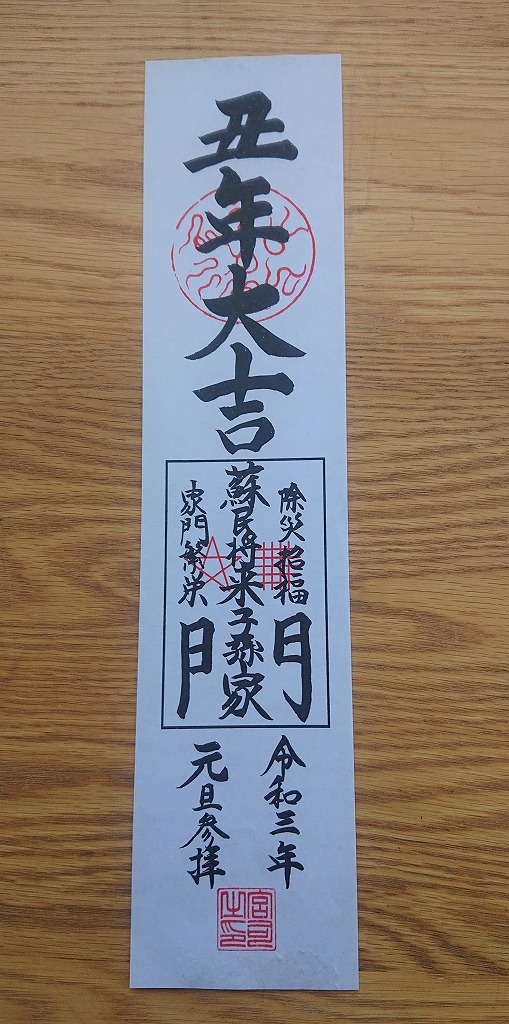 丑年大吉
除災招福
蘇民将来子孫家門
家門繁栄
令和三年
元旦参拝
宮司之印